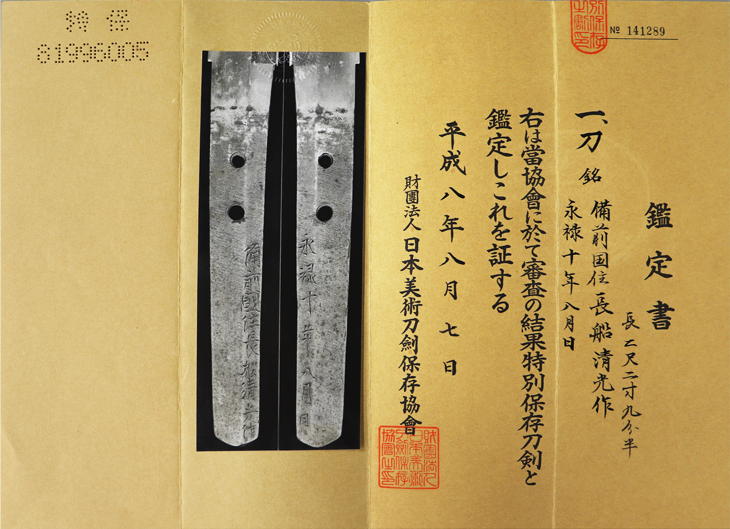 特保
81996005
№ 141289
鑑定書
一、刀 銘 備前国住長船清光作
永禄十年八月日
長二尺二寸九分半
右は當協會に於て審査の結果特別保存刀剣と
鑑定しこれを証する
平成八年八月七日
財團法人 日本美術刀劍保存協會
永禄十年八月日
備前国住長船清光作